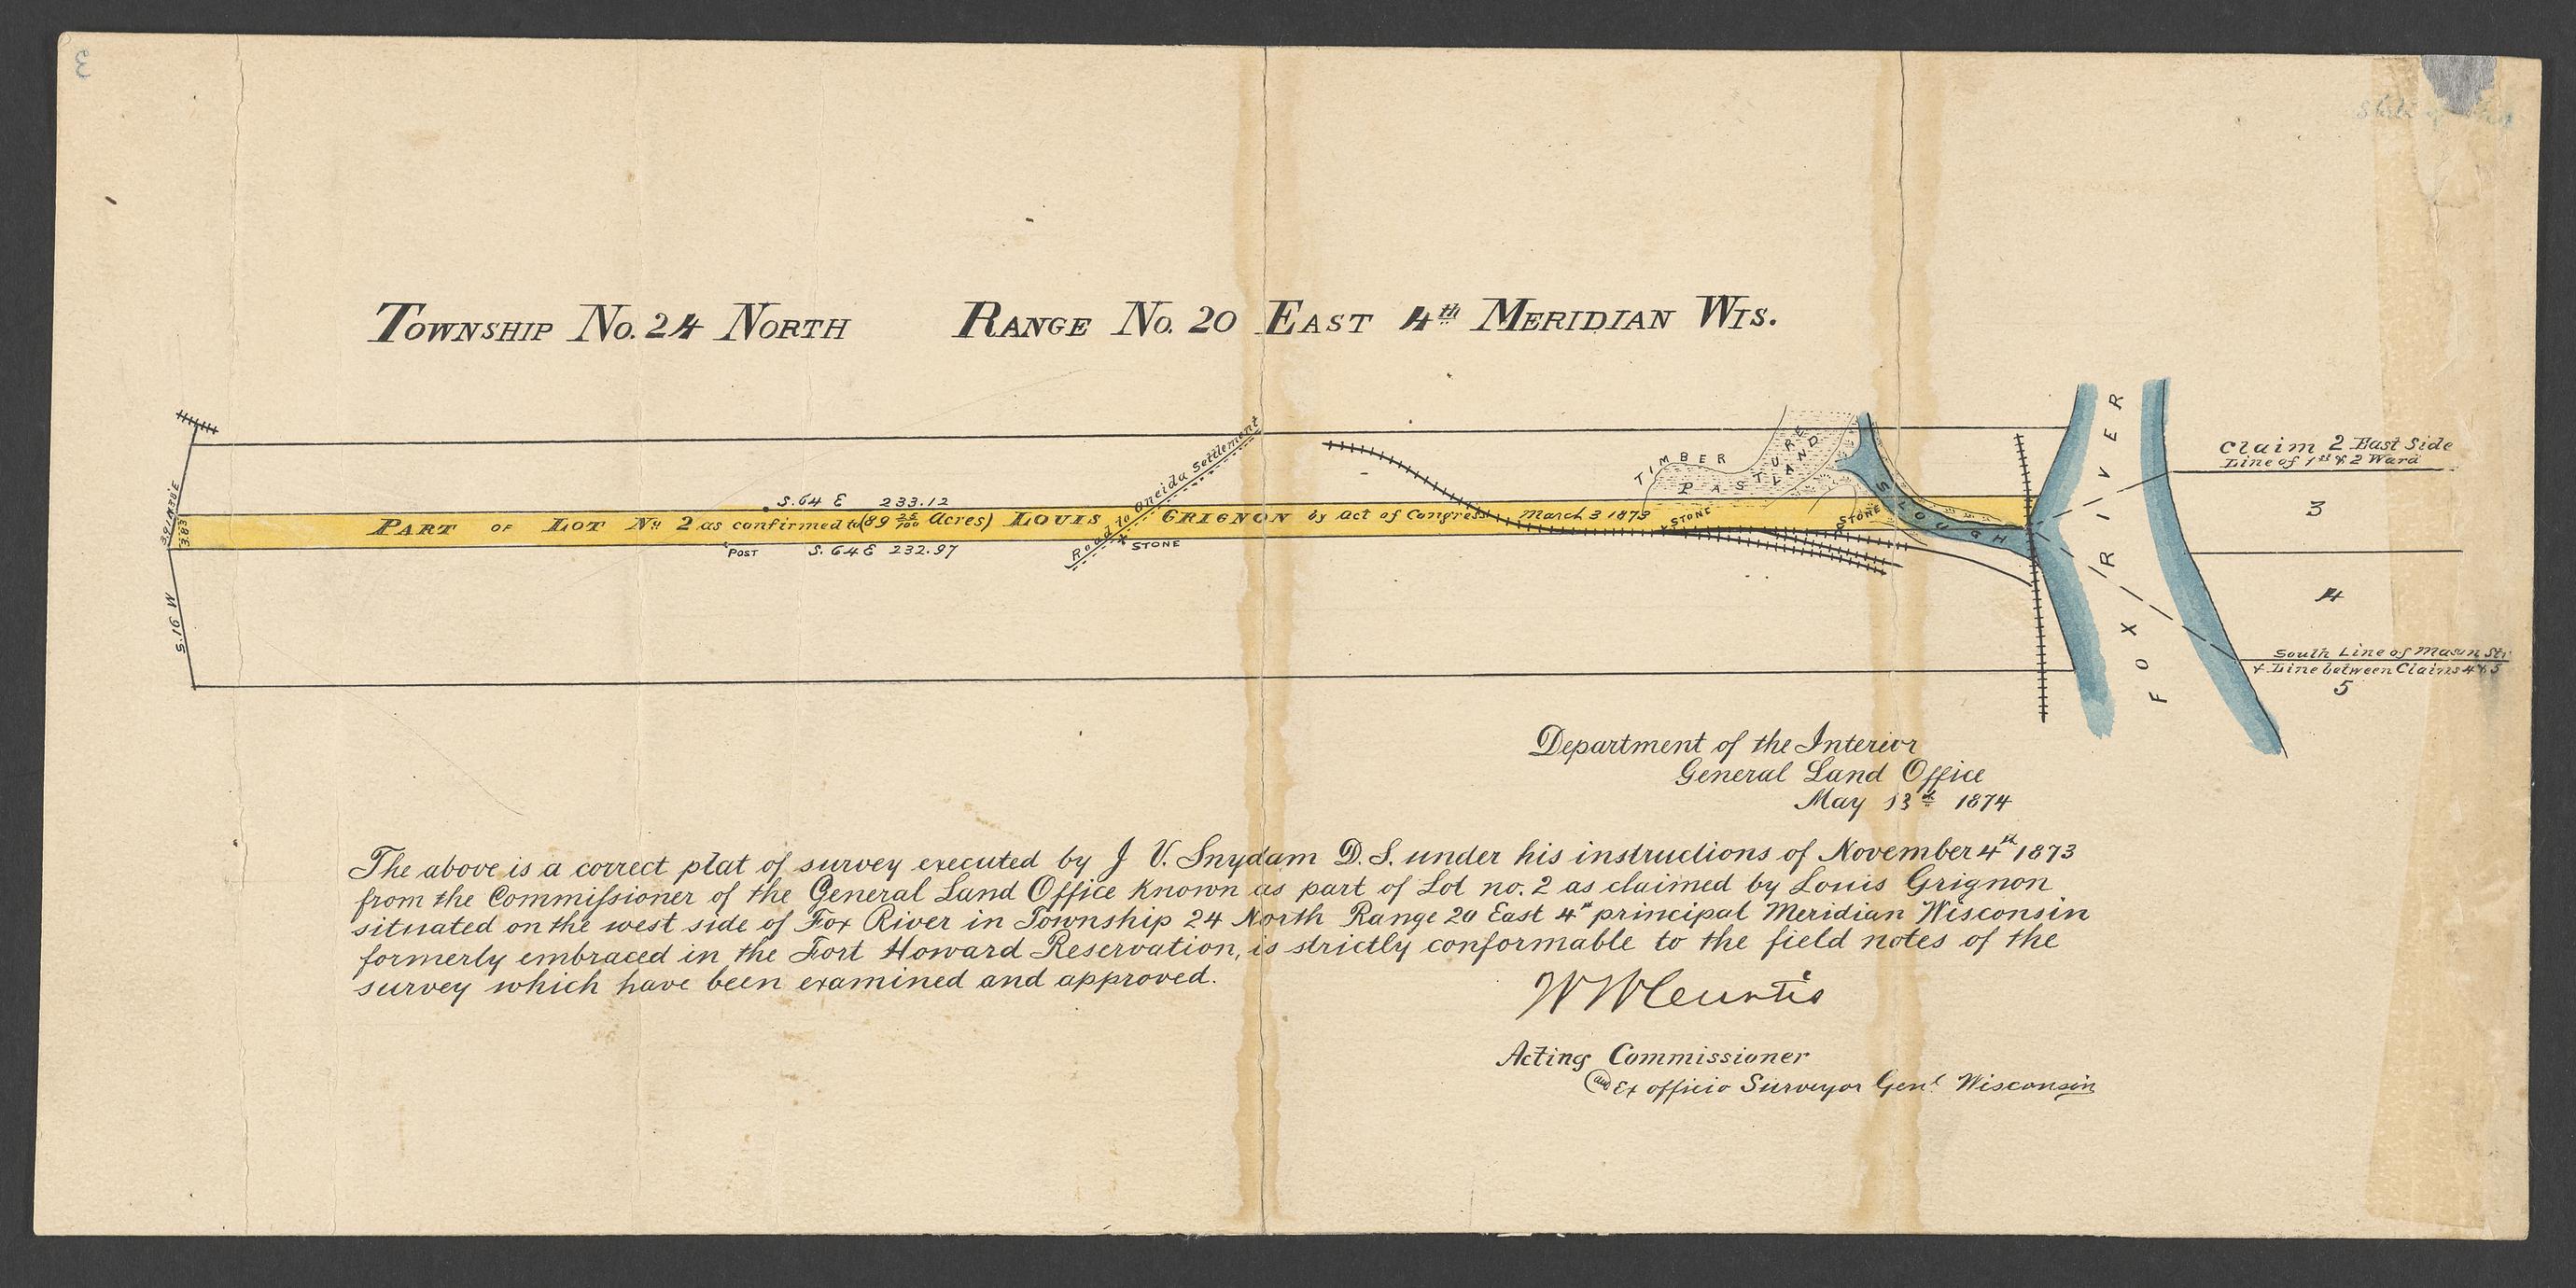 3
TOWNSHIP No. 24 NORTH RANGE No. 20 EAST 4th MERIDIAN WIS.
Road to Oneida Settlement
TIMBER
PASTURE LAND
SLOUGH
FOX RIVER
Claim 2 East Side
Line of 1st & 2 Ward
3
4
South Line of Mason Str
& Line between Claims 4 & 5
5
S. 64 E 233.12
PART OF LOT No 2 as confirmed to (89 25/100 Acres) LOUIS GRIGNON by Act of Congress March 3 1873
STONE
STONE
3.83
POST S. 64 E 232.97
STONE
S. 16 W
Department of the Interior
General Land Office
May 13th 1874
The above is a correct plat of survey executed by J V. Snydam D. S. under his instructions of November 4th 1873
from the Commissioner of the General Land Office known as part of Lot no. 2 as claimed by Louis Grignon
situated on the west side of Fox River in Township 24 North Range 20 East 4th principal Meridian Wisconsin
formerly embraced in the Fort Howard Reservation, is strictly conformable to the field notes of the
survey which have been examined and approved.
W W Curtis
Acting Commissioner
and Ex officio Surveyor Genl Wisconsin